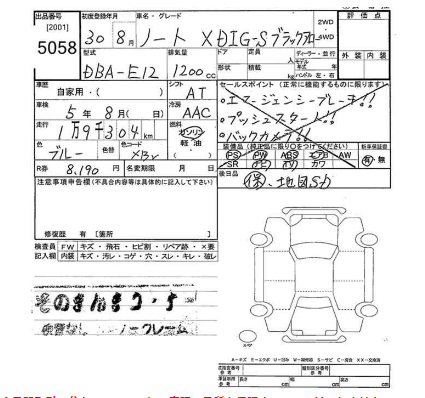 出品番号 [2001] 5058
初度登録年月 30年8月
車名・グレード ノート X DIG-S ブラックアロ
2WD 4WD
評価点
型式 DBA-E12
排気量 1200 cc
ドア 形状
定員 人
積載 kg
ディーラー・並行
モデル年式 年
ハンドル 左・右
外装 内装
車歴 自家用・( )
シフト AT
車検 5年8月(日)
冷房 AAC
走行 1万9千304km
燃料 ガソリン 軽油 ( )
色 ブルー
色替
色コード XBV
R券 8,190円
名変期限 月 日
セールスポイント(正常に機能するものに限ります)
・エマージェンシーブレーキ!!
・プッシュスタート!!
・バックカメラ!!
装備品(純正品に限り○をつけてください)
PS PW ABS エアB AW
SR ナビ TV
新車保証書 有・無
後日品 保、地図SD
注意事項申告欄(不具合内容等は具体的に記入して下さい)
修復歴 有 [箇所 ]
検査員記入欄
FW キズ・飛石・ヒビ割・リペア跡・×要
内装 キズ・汚レ・コゲ・穴・スレ・キレ・破レ
そのまんま
ノークレーム
A-キズ E-エクボ U-凹み W-補修跡 S-サビ C-腐食 XX-交換済
長さ cm 幅 cm 高さ cm